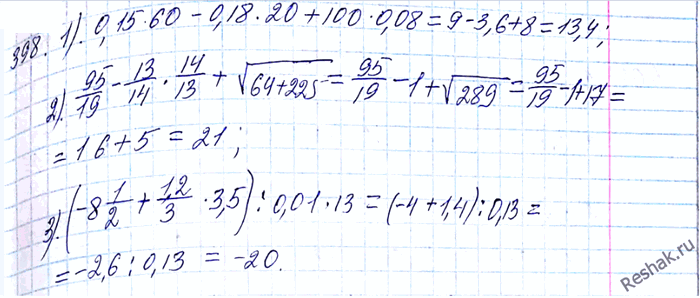 398. 1). 0,15·60 - 0,18·20 + 100·0,08 = 9 - 3,6 + 8 = 13,4;
2). 95/19 - 13/14 · 14/13 + √(64+225) = 95/19 - 1 + √289 = 95/19 - 1 + 17 =
= 16 + 5 = 21;
3). (-8 1/2 + 1,2/3 · 3,5) : 0,01·13 = (-4 + 1,4) : 0,13 =
= -2,6 : 0,13 = -20.
Reshak.ru